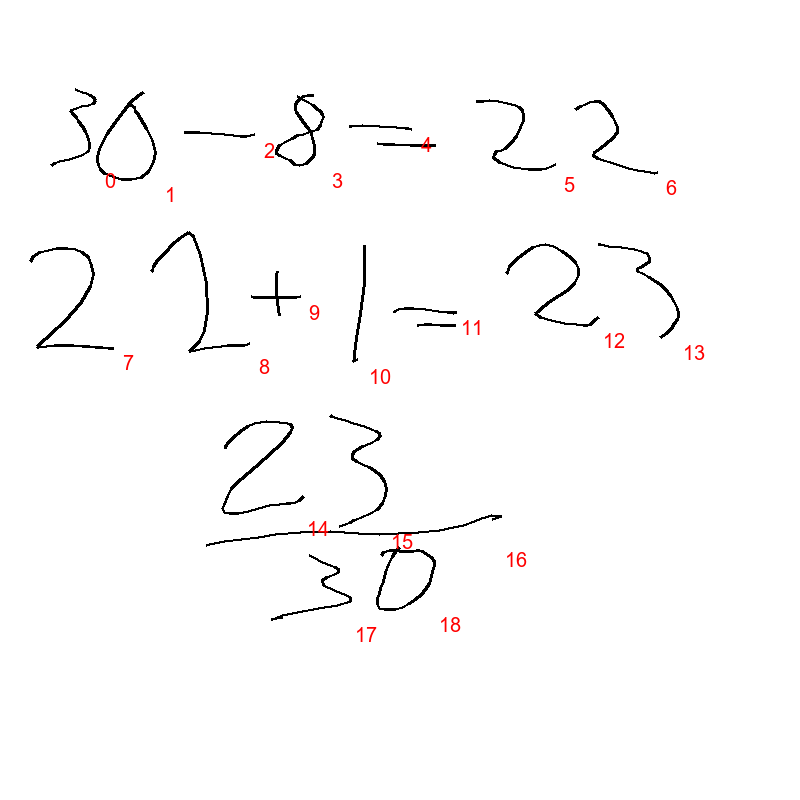 30 - 8 = 22
0 1 2 3 4 5 6
22 + 1 = 23
7 8 9 10 11 12 13
23
14 15 16
30
17 18